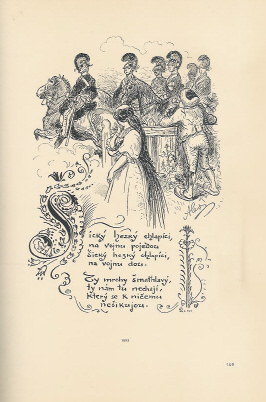 Šicky hezký chlapíci,
na vojnu pojedou
Šicky hezký chlapíci,
na vojnu dou.
Ty mrohy šmathlavý,
ty nám tu nechají,
který se k ničemu
nešikujou.